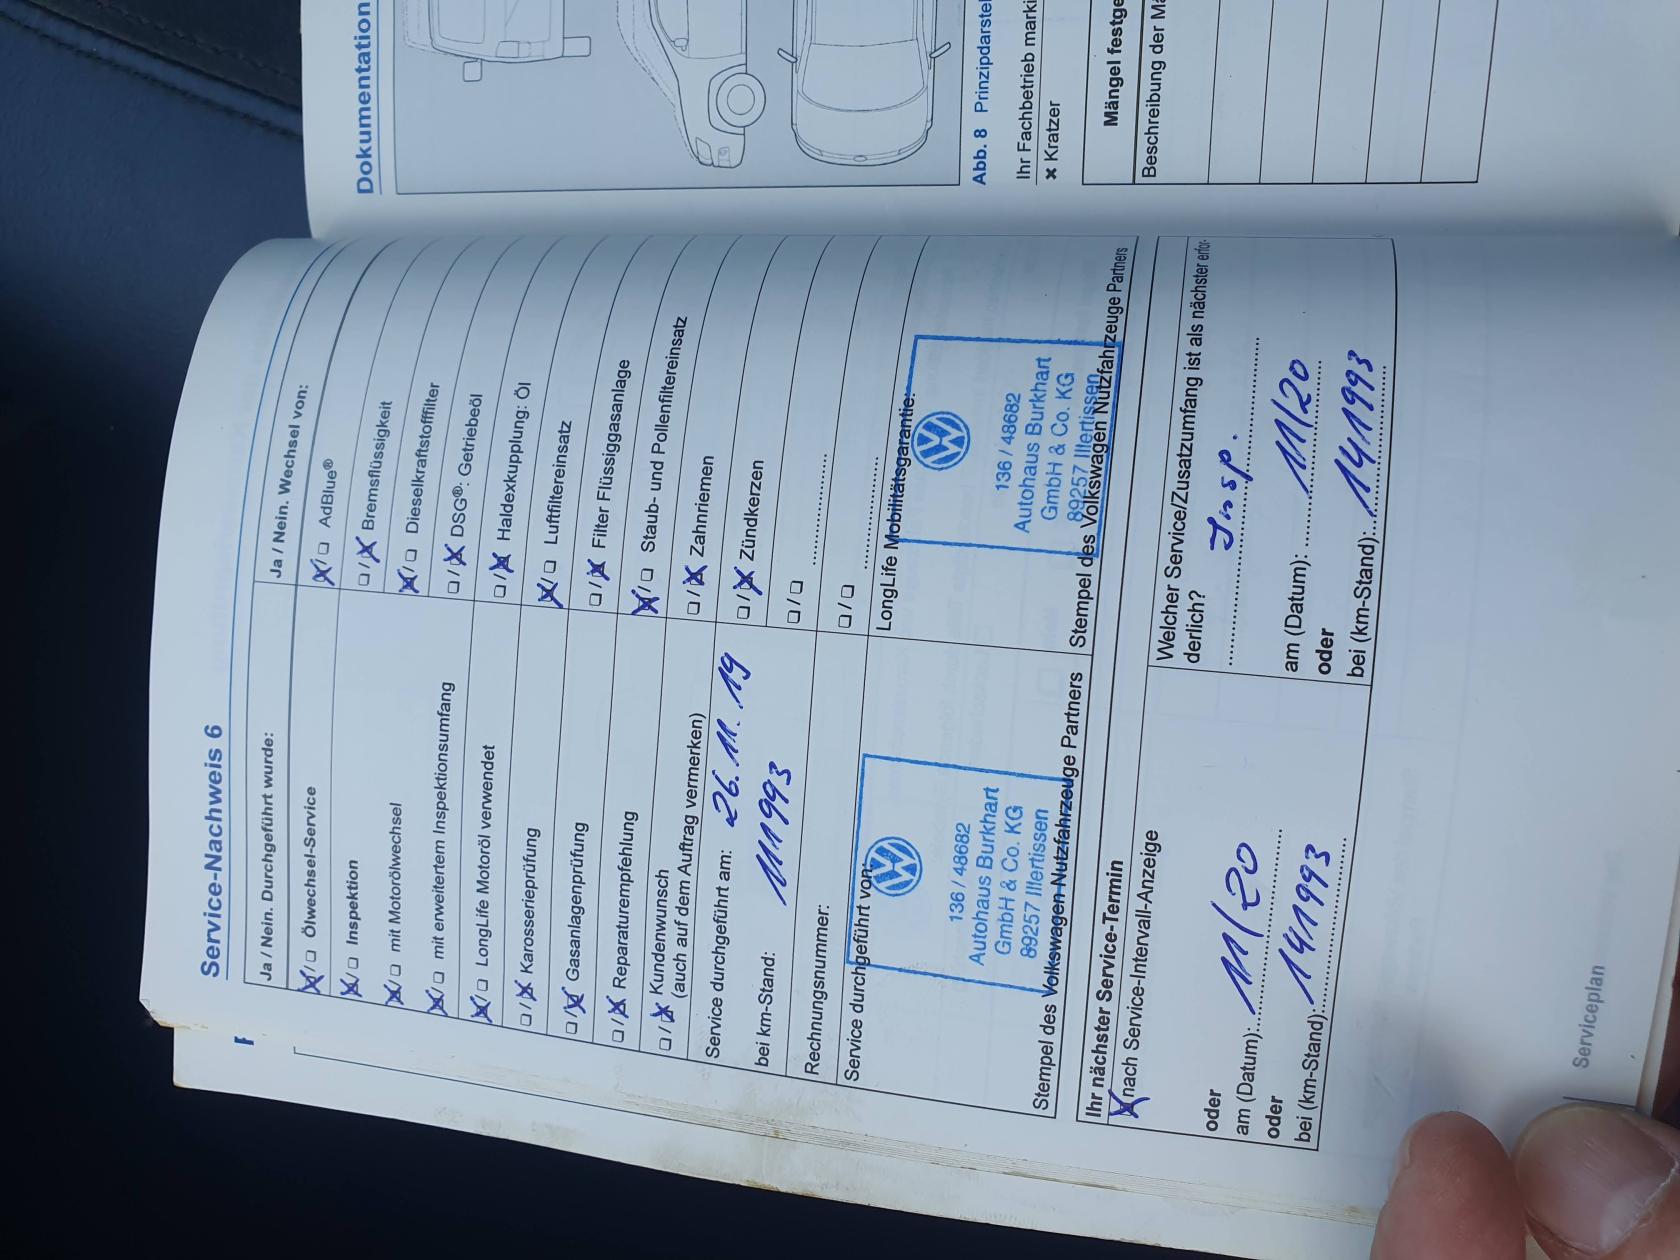 Service-Nachweis 6
Ja / Nein. Durchgeführt wurde:
☒/☐ Ölwechsel-Service
☒/☐ Inspektion
☒/☐ mit Motorölwechsel
☒/☐ mit erweitertem Inspektionsumfang
☒/☐ LongLife Motoröl verwendet
☐/☒ Karosserieprüfung
☐/☒ Gasanlagenprüfung
☐/☒ Reparaturempfehlung
☐/☒ Kundenwunsch
(auch auf dem Auftrag vermerken)
Service durchgeführt am: 26.11.19
bei km-Stand: 111993
Rechnungsnummer:
Service durchgeführt von:
136 / 48682
Autohaus Burkhart
GmbH & Co. KG
89257 Illertissen
Stempel des Volkswagen Nutzfahrzeuge Partners
Ja / Nein. Wechsel von:
☒/☐ AdBlue®
☐/☒ Bremsflüssigkeit
☒/☐ Dieselkraftstofffilter
☐/☒ DSG®: Getriebeöl
☐/☒ Haldexkupplung: Öl
☒/☐ Luftfiltereinsatz
☐/☒ Filter Flüssiggasanlage
☒/☐ Staub- und Pollenfiltereinsatz
☐/☒ Zahnriemen
☐/☒ Zündkerzen
☐/☐
☐/☐
LongLife Mobilitätsgarantie:
136 / 48682
Autohaus Burkhart
GmbH & Co. KG
89257 Illertissen
Stempel des Volkswagen Nutzfahrzeuge Partners
Ihr nächster Service-Termin
☒ nach Service-Intervall-Anzeige
oder
am (Datum): 11/20
oder
bei (km-Stand): 141993
Welcher Service/Zusatzumfang ist als nächster erfor-
derlich?
Insp.
am (Datum): 11/20
oder
bei (km-Stand): 141993
Serviceplan
Dokumentation
Abb. 8 Prinzipdarstel
Ihr Fachbetrieb marki
× Kratzer
Mängel festge
Beschreibung der Mä